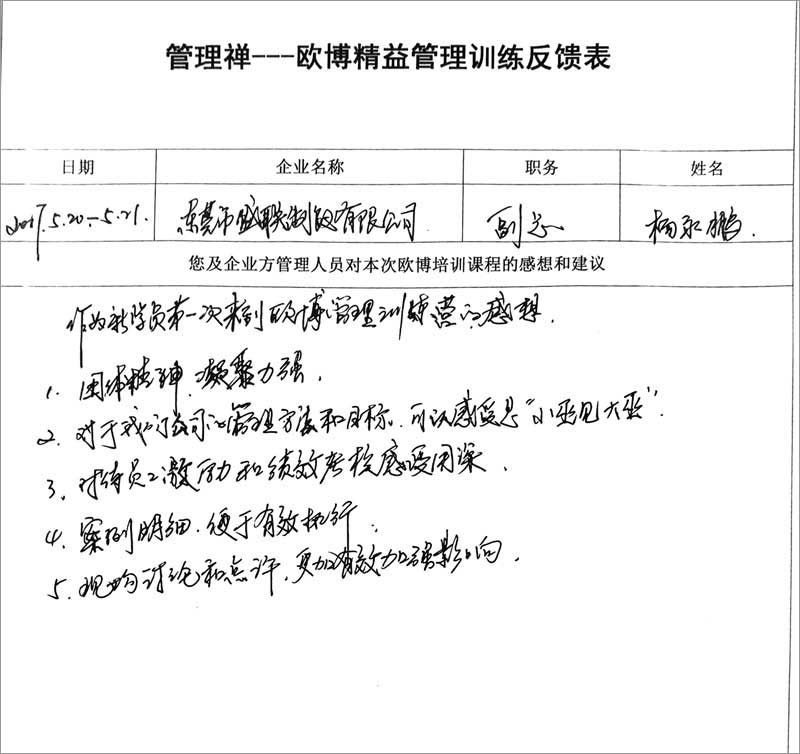 管理禅---欧博精益管理训练反馈表
日期 企业名称 职务 姓名
2017.5.20—5.21. 东莞市盛联制锁有限公司 副总 杨永鹏
您及企业方管理人员对本次欧博培训课程的感想和建议
作为新学员第一次来到欧博管理训练营的感想.
1. 团体精神,凝聚力强.
2. 对于我们公司的管理方法和目标.可以感受是“小巫见大巫”.
3. 对待员工激励和绩效考核感受困深.
4. 案例明细.便于有效执行.
5. 现场讨论和点评,更加有效加强影响.